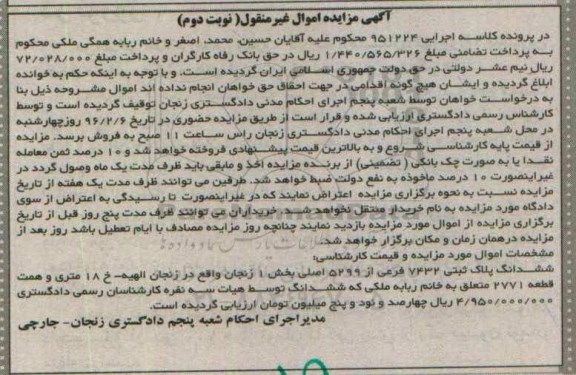 آگهی مزایده اموال غیرمنقول( نوبت دوم)
در پرونده کلاسه اجرایی ۹۵۱۲۲۴ محکوم علیه آقایان حسین، محمد، اصغر و خانم ربابه همگی ملکی محکوم
به پرداخت تضامنی مبلغ ۱/۴۴۰/۵۶۵/۳۲۶ ریال در حق بانک رفاه کارگران و پرداخت مبلغ ۷۲/۰۲۸/۰۰۰
ریال نیم عشر دولتی در حق دولت جمهوری اسلامی ایران گردیده است. و با توجه به اینکه حکم به خوانده
ابلاغ گردیده و ایشان هیچ گونه اقدامی در جهت احقاق حق خواهان انجام نداده اند اموال مشروحه ذیل بنا
به درخواست خواهان توسط شعبه پنجم اجرای احکام مدنی دادگستری زنجان توقیف گردیده است و توسط
کارشناس رسمی دادگستری ارزیابی شده و قرار است از طریق مزایده حضوری در تاریخ ۹۶/۲/۶ روزچهارشنبه
در محل شعبه پنجم اجرای احکام مدنی دادگستری زنجان راس ساعت ۱۱ صبح به فروش برسد. مزایده
از قیمت پایه کارشناسی شروع و به بالاترین قیمت پیشنهادی فروخته خواهد شد و ۱۰ درصد ثمن معامله
نقدا یا به صورت چک بانکی ( تضمینی) از برنده مزایده اخذ و مابقی باید ظرف مدت یک ماه وصول گردد در
غیراینصورت ۱۰ درصد ماخوذه به نفع دولت ضبط خواهد شد. طرفین می توانند ظرف مدت یک هفته از تاریخ
مزایده نسبت به نحوه برگزاری مزایده اعتراض نمایند که در غیراینصورت تا رسیدگی به اعتراض از سوی
دادگاه مورد مزایده به نام خریدار منتقل نخواهد شد. خریداران می توانند ظرف مدت پنج روز قبل از تاریخ
برگزاری مزایده از اموال مورد مزایده بازدید نمایند چنانچه روز مزایده مصادف با ایام تعطیل باشد روز بعد از
مزایده درهمان زمان و مکان برگزار خواهد شد.
مشخصات اموال مورد مزایده و قیمت کارشناسی:
ششدانگ پلاک ثبتی ۷۴۳۲ فرعی از ۵۲۹۹ اصلی بخش ۱ زنجان واقع در زنجان الهیه– خ ۱۸ متری و همت
قطعه ۲۷۷۱ متعلق به خانم ربابه ملکی که ششدانگ توسط هیات سه نفره کارشناسان رسمی دادگستری
۴/۹۵۰/۰۰۰/۰۰۰ ریال چهارصد و نود و پنج میلیون تومان ارزیابی گردیده است.
مدیراجرای احکام شعبه پنجم دادگستری زنجان- جارچی